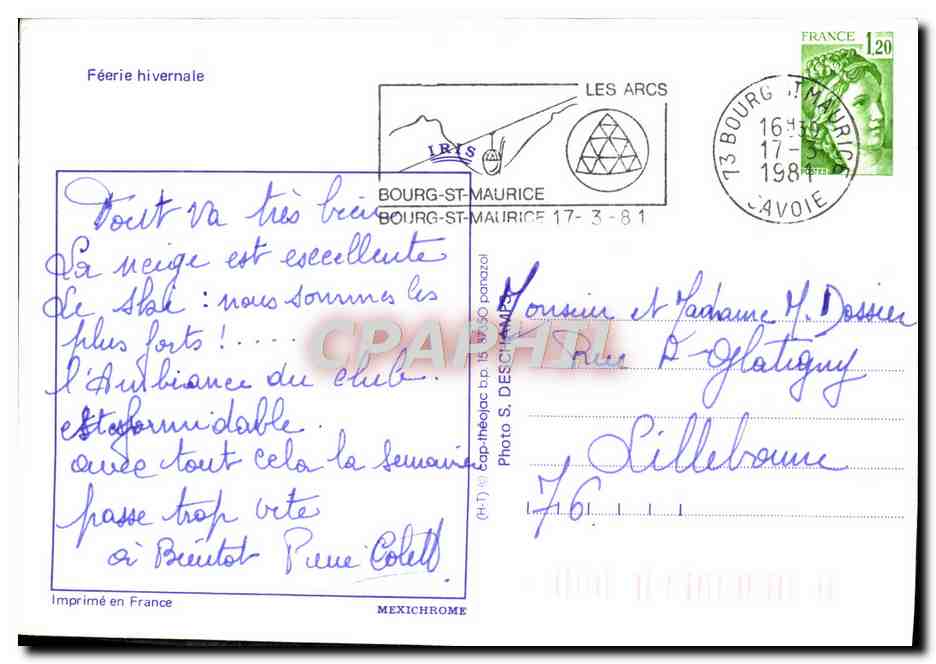 Féerie hivernale
FRANCE 1,20
LES ARCS
IRIS
BOURG-ST-MAURICE
BOURG-ST-MAURICE 17-3-81
73 BOURG ST MAURICE
16H30
17-3
1981
SAVOIE
Tout va très bien
La neige est excellente
Le ski : nous sommes les
plus forts !.....
l'Ambiance du club.
est formidable.
avec tout cela la semaine
passe trop vite
à Bientot Pierre Colett
Imprimé en France
MEXICHROME
(H-T) cap-théojac b.p. 15 87350 panazol
Photo S. DESCHAMPS
CPAPHIL
Monsieur et Madame M. Dossier
Rue A-Glatigny
Lillebonne
76